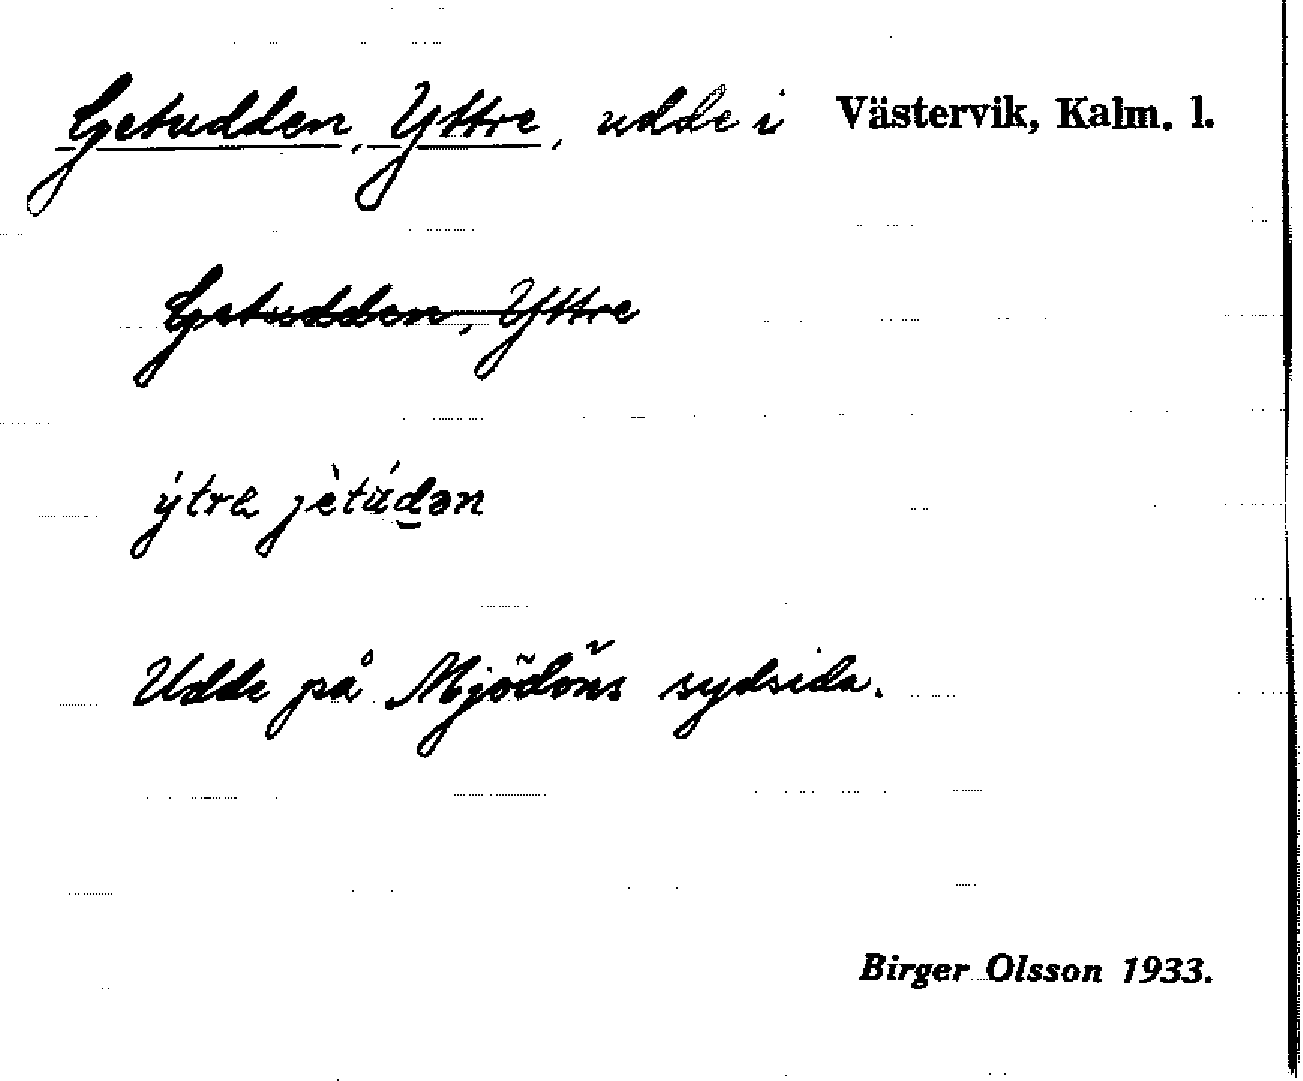 Getudden, Yttre, udde i Västervik, Kalm. l.
Getudden, Yttre
ýtra jètúdən
Udde på Mjödöns sydsida.
Birger Olsson 1933.